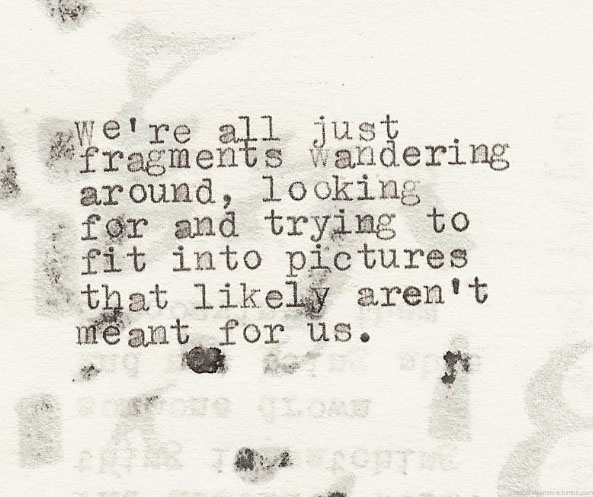 We're all just
fragments wandering
around, looking
for and trying to
fit into pictures
that likely aren't
meant for us.